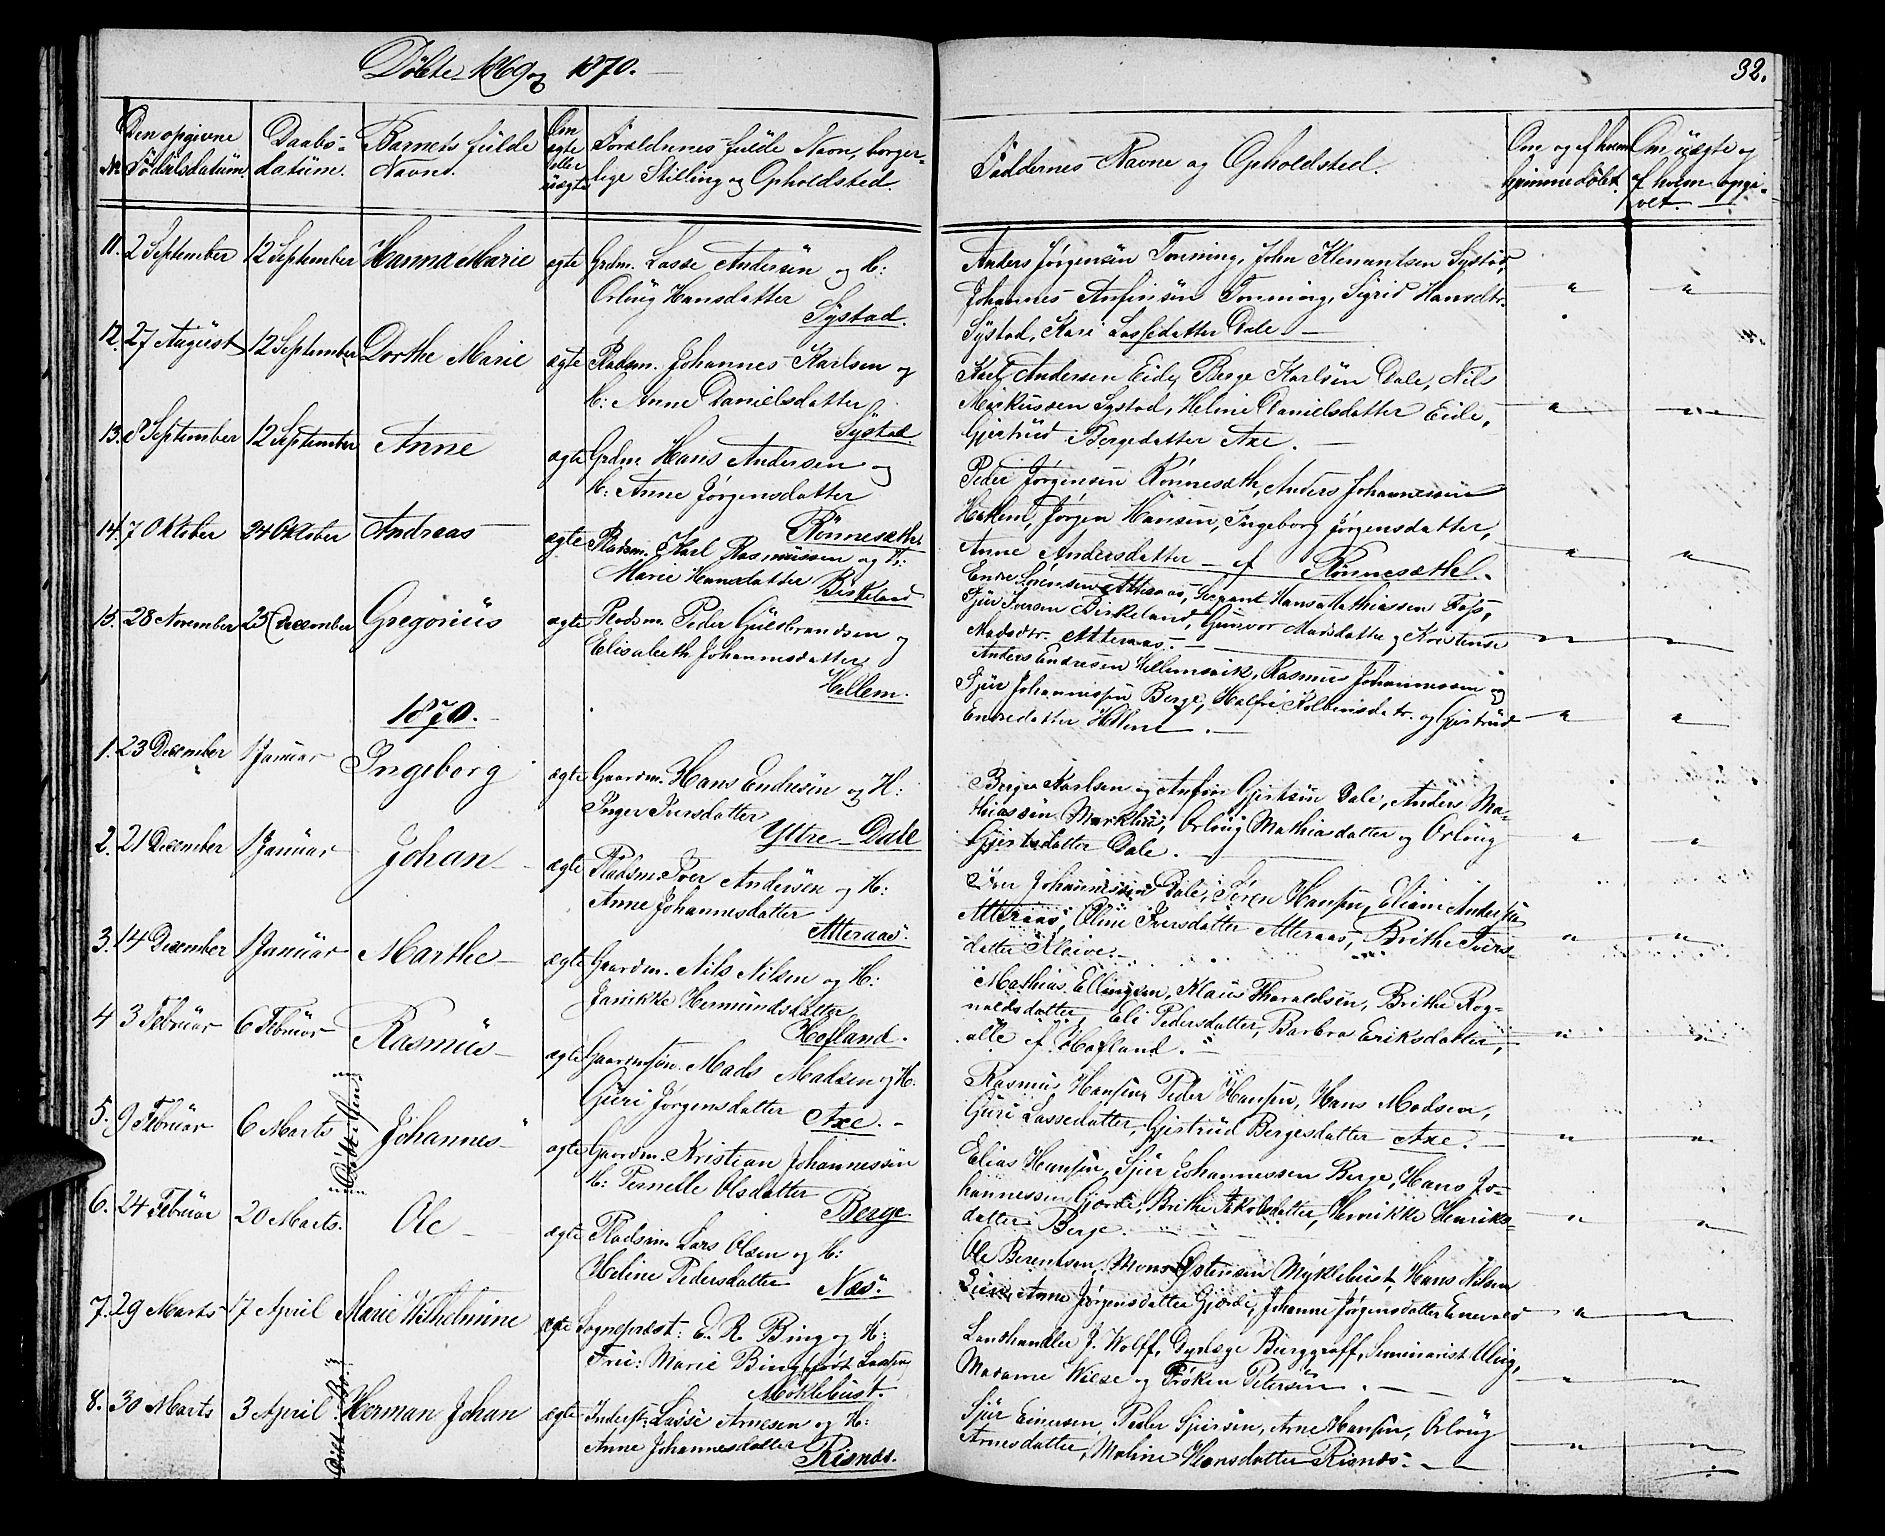 Døbte 1869 og 1870.
32.
No Den opgivne Fødselsdatum
Daabs-datum.
Barnets fulde Navn.
Om ægte eller uægte
Forældrenes fulde Navn, borger-
lige Stilling og Opholdsted.
Faddernes Navne og Opholdsted.
Om og af hvem hjemmedøbt.
Om uægte og af hvem opgi-vet.
11. 2 September 12 September Hanna Marie ægte Grdm. Lasse Andersen og H:
Orloug Hansdatter
Systad.
Anders Jørgensen Tonning, John Klemantsen Systad,
Johannes Anfinsen Tonning, Sigrid Hansdtr.
Systad, Kari Lassedatter Dale
12. 27 August 12 September Dorthe Marie ægte Pladsm. Johannes Karlsen og
H: Anne Danielsdatter
Systad
Karl Andersen Eide, Berge Karlsen Dale, Nils
Markussen Systad, Heline Danielsdatter Eide,
Gjertrud Bergedatter Axe.
13. 8 September 12 September Anne ægte Grdm. Hans Andersen og
H: Anne Jørgensdatter
Rønnesæth.
Peder Jørgensen Rønnesæth, Anders Johannessen
Hellem, Jørgen Hansen, Ingeborg Jørgensdatter,
Anne Andersdatter af Rønnesæthe.
14. 7 Oktober 24 Oktober Andreas ægte Pladsm. Karl Rasmussen og H:
Marie Hansdatter Birkeland
Endre Sørensen Atteraas, Sergeant Hans Mathiassen Foss,
Sjur Iversen Birkeland, Gunvor Madsdatter og Kirstense
Madsdtr. Atteraas.
15. 28 November 25 December Gregorius ægte Pladsm. Peder Gulbrandsen og
Elisabeth Johannesdatter
Hellem.
Anders Endresen Hellemsvik, Rasmus Johannessen og
Sjur Johannessen Berge, Kolbeinsdatr. og Gjertrud
Endredatter Hellem.
1870.
1. 23 December 1 Januar Ingeborg ægte Gaardm. Hans Endresen og H:
Inger Iversdatter
Yttre-Dale
Berge Karlsen og Anfin Gjertsen Dale, Anders Ma-
thiassen Marklu, Orloug Mathiasdatter og Orloug
Gjertsdatter Dale.
2. 21 December 1 Januar Johan ægte Pladsm. Iver Andersen og H:
Anne Johannesdatter
Atteraas.
Iver Johannessen Dale, Søren Hansen, Andersen
Atteraas, Oline Iversdatter Atteraas, Brithe Ivers-
datter Kleive.
3. 14 December 1 Januar Marthe ægte Gaardm. Nils Nilsen og H:
Janikke Hermundsdatter
Hofland.
Mathias Ellingsen, Klaus Tharaldsen, Brithe Rog-
naldsdatter, Eli Pedersdatter, Barbra Eriksdatter,
alle af Hofland.
4 3 Februar 6 Februar Rasmus ægte Gaardmsøn. Mads Madsen og H.
Guri Jørgensdatter Axe.
Rasmus Hansen, Peder Hansen, Hans Madsen,
Guri Lassedatter, Gjertrud Bergesdatter Axe.
5. 9 Februar 6 Marts Johannes ægte Gaardm. Kristian Johannessen
H: Pernelle Olsdatter
Berge.
Elias Hansen, Sjur Johannessen Berge, Hans Jo-
hannessen Gjørde, Brithe Jakobsdatter, Henrikke Henriks-
datter Berge.
6. 24 Februar 20 Marts. Ole ægte Pladsm. Lars Olsen og H:
Heline Pedersdatter Næs.
Ole Berentsen, Mons Østensen Myklebust, Hans Nilsen
Anne Jørgensdatter Gjørde, Johanne Jørgensdatter Enevald
7. 29 Marts 17 April Marie Wilhelmine ægte Sognepræst: E. R. Bing og H:
Frue: Marie Bing født Laassen
Møklebust.
Landhandler J. Wolff, Dyrlæge Burggraff, Seminarist Ulvig,
Madame Wiese og Frøken Petersen.
8. 30 Marts 3 April Herman Johan ægte Inderst: Lasse Arnesen og H:
Anne Johannesdatter
Risnæs.
Sjur Einersen, Peder Sjursen, Arne Hansen, Orloug
Arnesdatter, Maline Hansdatter Risnæs.